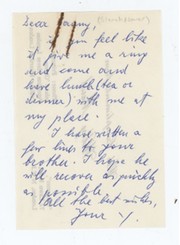 Dear
if you feel like
it give me a ring
and come and
have lunch (tea or
dinner) with me at
my place.
I have written a
few lines to your
brother. I hope he
will recover as quickly
as possible.
All the best wishes,
Your